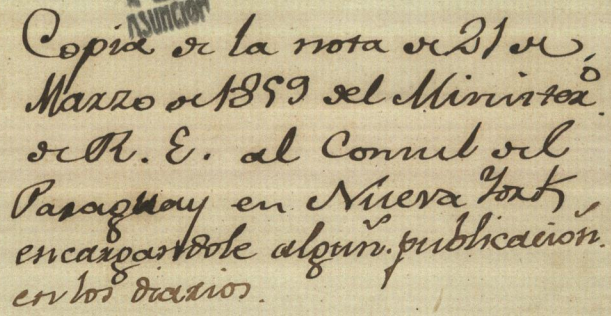 ASUNCIÓN
Copia de la nota de 21 de
Marzo de 1859 del Minister.º
de R. E. al Consul del
Paraguay en Nueva York
encargandole algun.ª publicación
en los diarios.